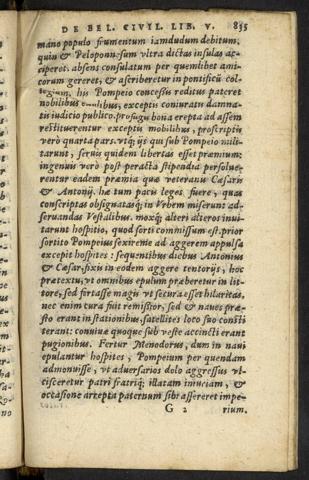 DE BEL. CIVIL. LIB. V. 835
mano populo frumentum iamdudum debitum,
quin & Peloponnesum vltra dictas insulas ac-
ciperet. absens consulatum per quemlibet ami-
corum gereret, & ascriberetur in pontificū col-
legium. his Pompeio concessis reditus pateret
nobilibus exulibus, exceptis coniuratis damna-
tis iudicio publico. profugis bona erepta ad assem
restituerentur exceptis mobilibus, proscriptis
verò quarta pars. vtq; ijs qui sub Pompeio mili-
tarunt, seruis quidem libertas esset præmium:
ingenuis verò post peracta stipendia persolue-
rentur eadem præmia quæ veteranis Cæsaris
& Antonij. hæ tum pacis leges fuere, quas
conscriptas obsignatasq; in Vrbem miserunt ad-
seruandas Vestalibus. moxq; alteri alteros inui-
tarunt hospitio, quod sorti commissum est. prior
sortito Pompeius sexiremē ad aggerem appulsa
excepit hospites: sequentibus diebus Antonius
& Cæsar, fixis in eodem aggere tentorijs, hoc
prætextu, vt omnibus epulum præberetur in lit-
tore, sed fortasse magis vt secura esset hilaritas,
nec enim tum fuit remissior, sed & naues præ-
sto erant in stationibus, satellites loco suo consti
terant: conuiuæ quoque sub veste accincti erant
pugionibus. Fertur Menodorus, dum in naui
epulantur hospites, Pompeium per quendam
admonuisse, vt aduersarios dolo aggressus vl-
cisceretur patri fratriq; illatam iniuriam, &
occasione arrepta paternum sibi assereret impe-
G 2 rium.